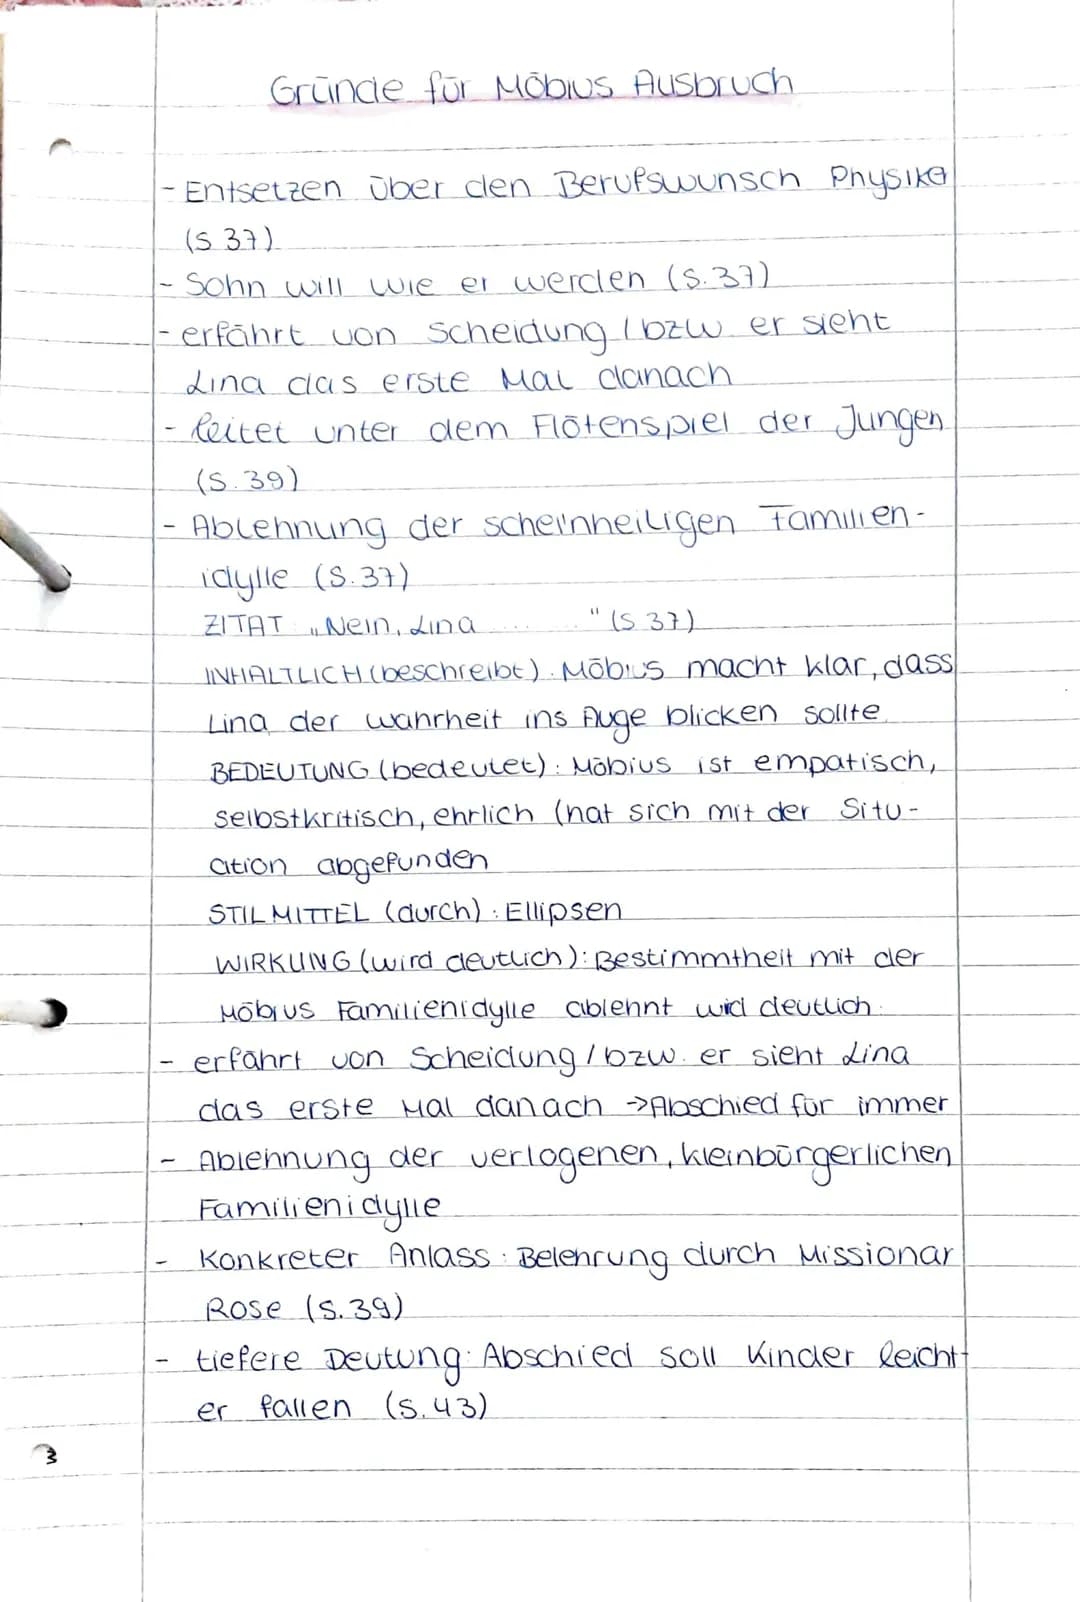 Gründe für Möbius Ausbruch
- Entsetzen über den Berufswunsch Physiker
(S 37)
- Sohn will wie er werden (S. 37)
- erfährt von Scheidung / bzw er sieht
Lina das erste Mal danach
- leitet unter dem Flötenspiel der Jungen
(S. 39)
- Ablehnung der scheinheiligen Familien-
idylle (S. 37)
ZITAT „Nein, Lina ... ..." (S 37)
INHALTLICH (beschreibt). Möbius macht klar, dass
Lina der wahrheit ins Auge blicken sollte
BEDEUTUNG (bedeutet): Möbius ist empatisch,
selbstkritisch, ehrlich (hat sich mit der Situ-
ation abgefunden
STILMITTEL (durch): Ellipsen
WIRKUNG (wird deutlich): Bestimmtheit mit der
Möbius Familienidylle ablehnt wird deutlich.
- erfährt von Scheidung / bzw. er sieht Lina
das erste Mal danach → Abschied für immer
- Ablehnung der verlogenen, kleinbürgerlichen
Familienidylle
- Konkreter Anlass: Belehrung durch Missionar
Rose (S. 39)
- tiefere Deutung: Abschied soll Kinder leicht-
er fallen (S. 43)